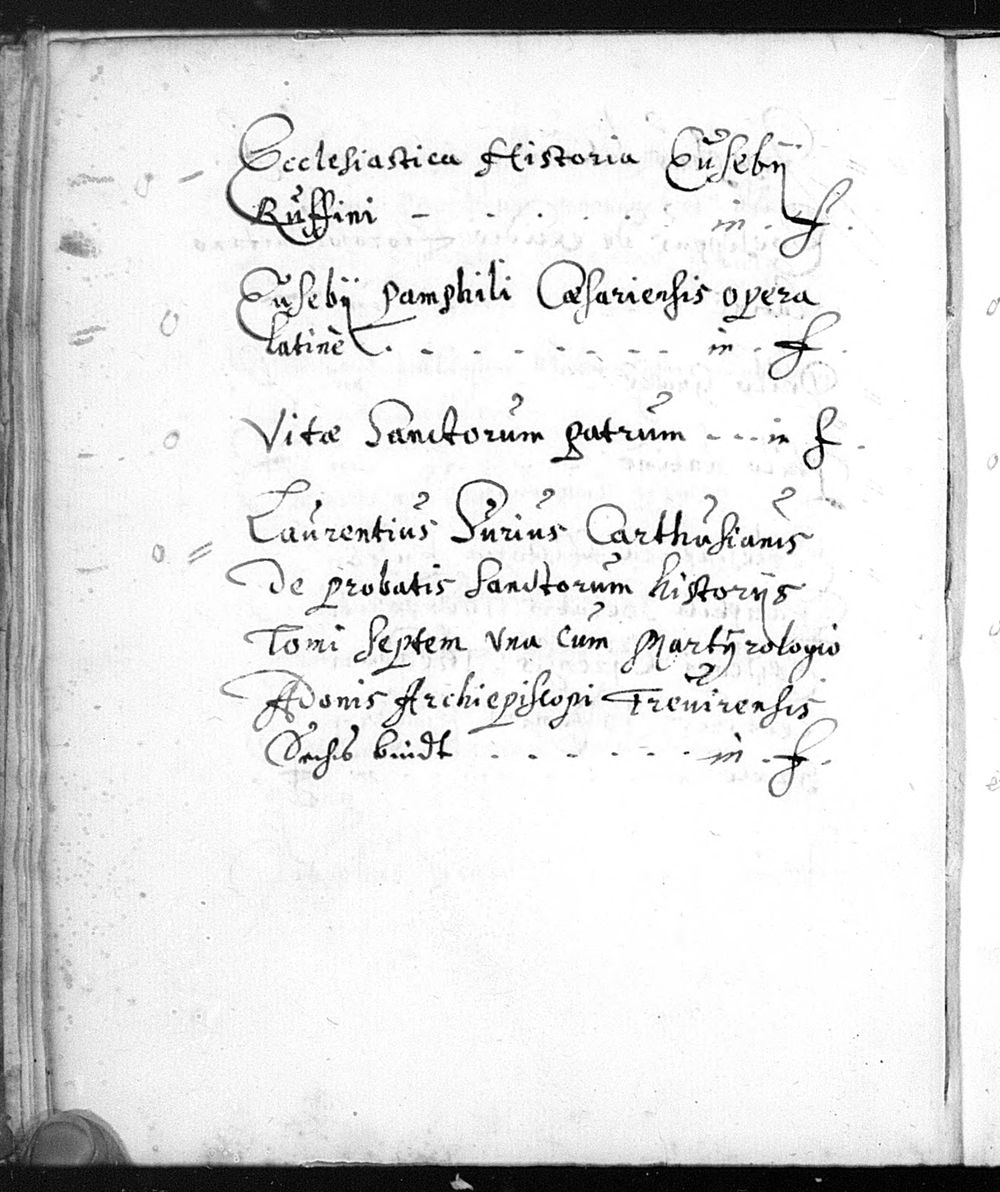 Ecclesiastica Historia Eusebij
Ruffini - - . . . . . in . f .
Eusebij Pamphili Cæsariensis opera
latinè . - - - - - - in . f .
Vitæ Sanctorum patrum - - - in f .
Laurentius Surius Carthusianus
De probatis Sanctorum historijs
Tomi septem vna cum Martÿrologio
Adonis Archiepiscopi Treuirensis
Sechs bundt . . . . - - - in . f .